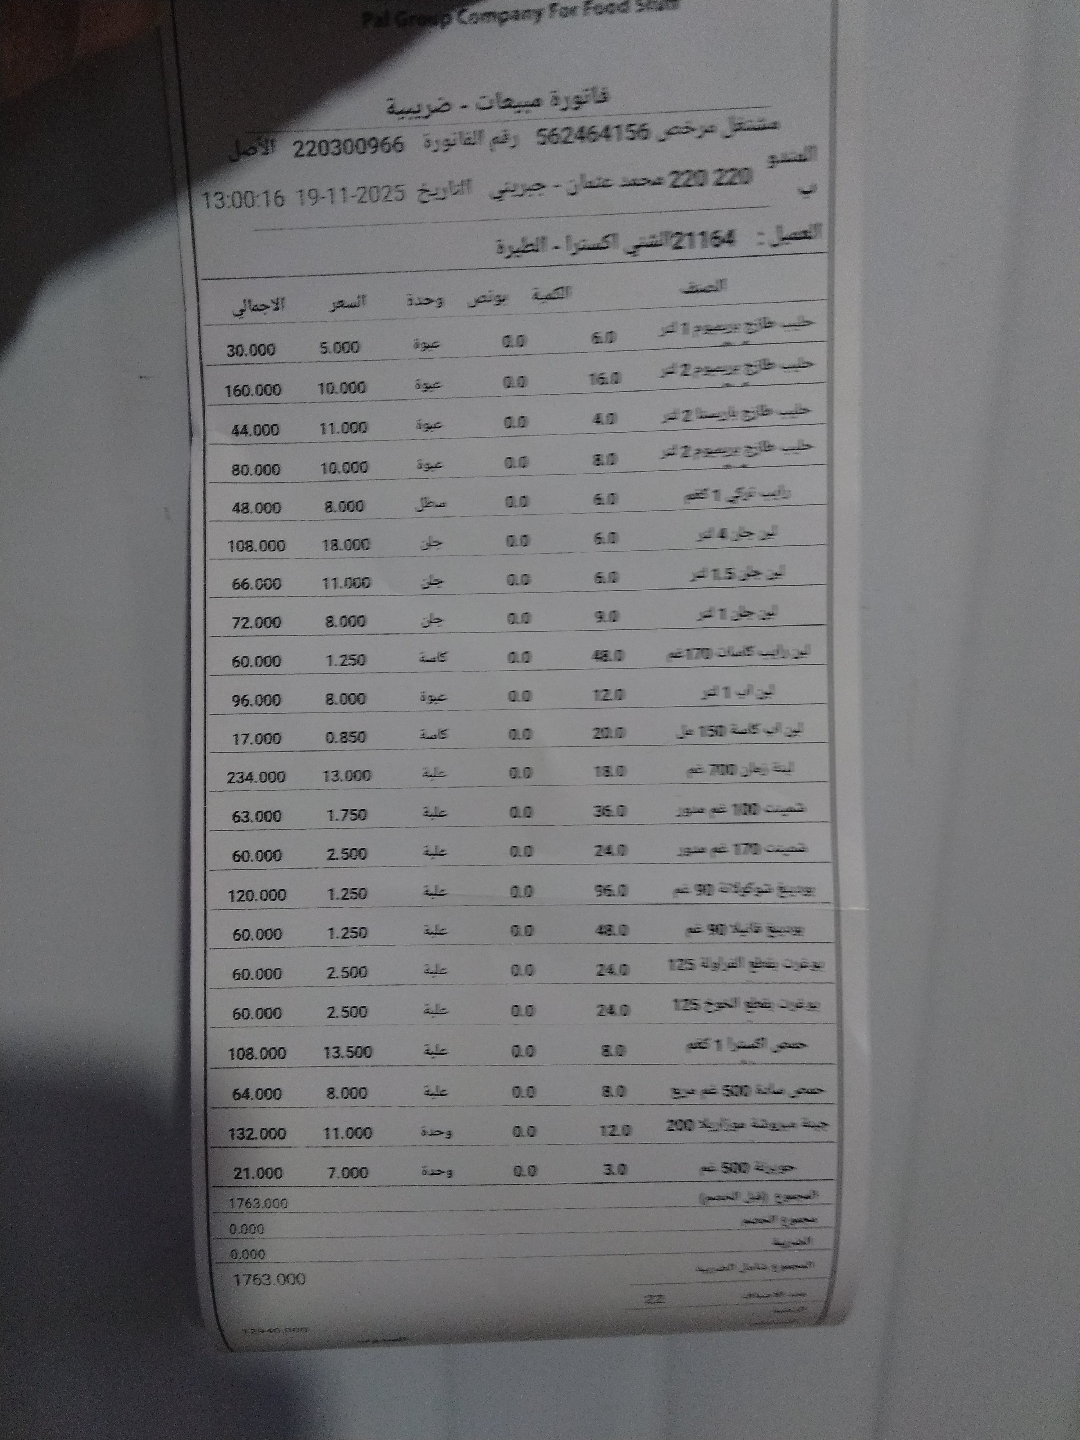 Pal Group Company For Food Stuff
فاتورة مبيعات - ضريبية
مشتغل مرخص 562464156 رقم الفاتورة 220300966 الأصل
المندوب 220 220 محمد عثمان - جبريني التاريخ 19-11-2025 13:00:16
العميل : 21164 الشني اكسترا - الطيرة
الصنف الكمية بونص وحدة السعر الاجمالي
حليب طازج بريميوم 1 لتر 6.0 0.0 عبوة 5.000 30.000
حليب طازج بريميوم 2 لتر 16.0 0.0 عبوة 10.000 160.000
حليب طازج باريستا 2 لتر 4.0 0.0 عبوة 11.000 44.000
حليب طازج بريميوم 2 لتر 8.0 0.0 عبوة 10.000 80.000
رايب تركي 1 كغم 6.0 0.0 سطل 8.000 48.000
لبن جلن 4 لتر 6.0 0.0 جلن 18.000 108.000
لبن جلن 1.5 لتر 6.0 0.0 جلن 11.000 66.000
لبن جلن 1 لتر 9.0 0.0 جلن 8.000 72.000
لبن رايب كاسات 170غم 48.0 0.0 كاسة 1.250 60.000
لبن اب 1 لتر 12.0 0.0 عبوة 8.000 96.000
لبن اب كاسة 150 مل 20.0 0.0 كاسة 0.850 17.000
لبنة زمان 700 غم 18.0 0.0 علبة 13.000 234.000
شمينت 100 غم مدور 36.0 0.0 علبة 1.750 63.000
شمينت 170 غم مدور 24.0 0.0 علبة 2.500 60.000
بودينغ شوكولاتة 90 غم 96.0 0.0 علبة 1.250 120.000
بودينغ فانيلا 90 غم 48.0 0.0 علبة 1.250 60.000
يوغرت بقطع الفراولة 125 24.0 0.0 علبة 2.500 60.000
يوغرت بقطع الخوخ 125 24.0 0.0 علبة 2.500 60.000
حمص اكسترا 1 كغم 8.0 0.0 علبة 13.500 108.000
حمص سادة 500 غم مربع 8.0 0.0 علبة 8.000 64.000
جبنة مبروشة موزاريلا 200 12.0 0.0 وحدة 11.000 132.000
500 غم 3.0 0.0 وحدة 7.000 21.000
المجموع (قبل الخصم) 1763.000
مجموع الخصم 0.000
الضريبة 0.000
المجموع شامل الضريبة 1763.000
عدد الأصناف 22